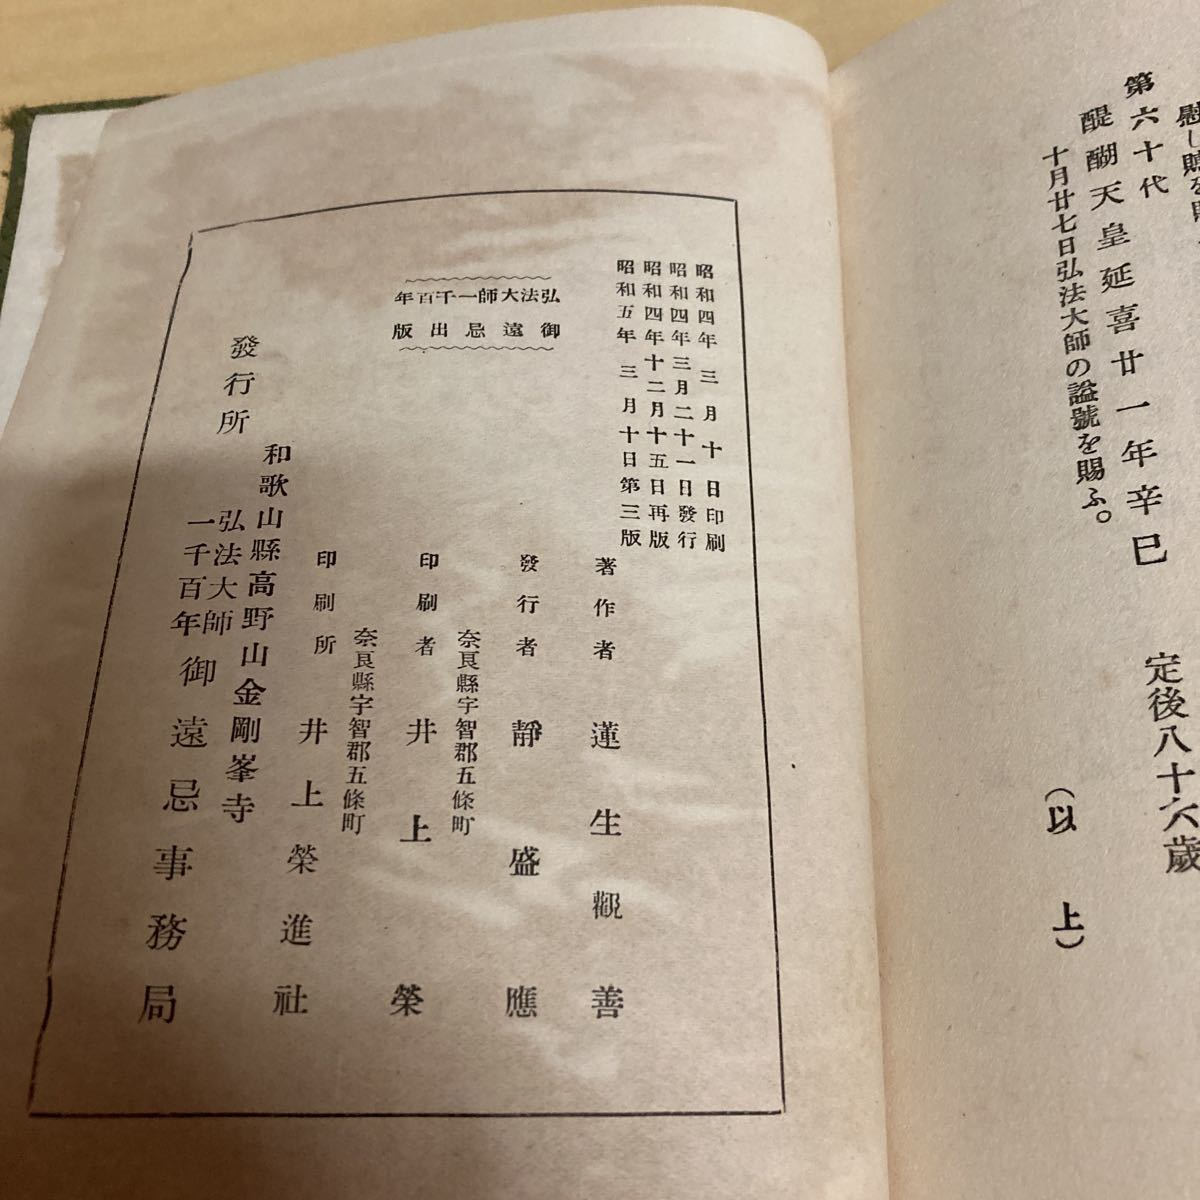 第六十代
醍醐天皇延喜廿一年辛巳　定後八十六歲
十月廿七日弘法大師の諡號を賜ふ。
（以上）
昭和四年三月十日印刷
昭和四年三月二十一日發行
昭和四年十二月十五日再版
昭和五年三月十日第三版
弘法大師一千百年
御遠忌出版
著作者　蓮生觀善
發行者　靜盛應
奈良縣宇智郡五條町
印刷者　井上榮
奈良縣宇智郡五條町
印刷所　井上榮進社
和歌山縣高野山金剛峯寺
發行所　弘法大師一千百年御遠忌事務局